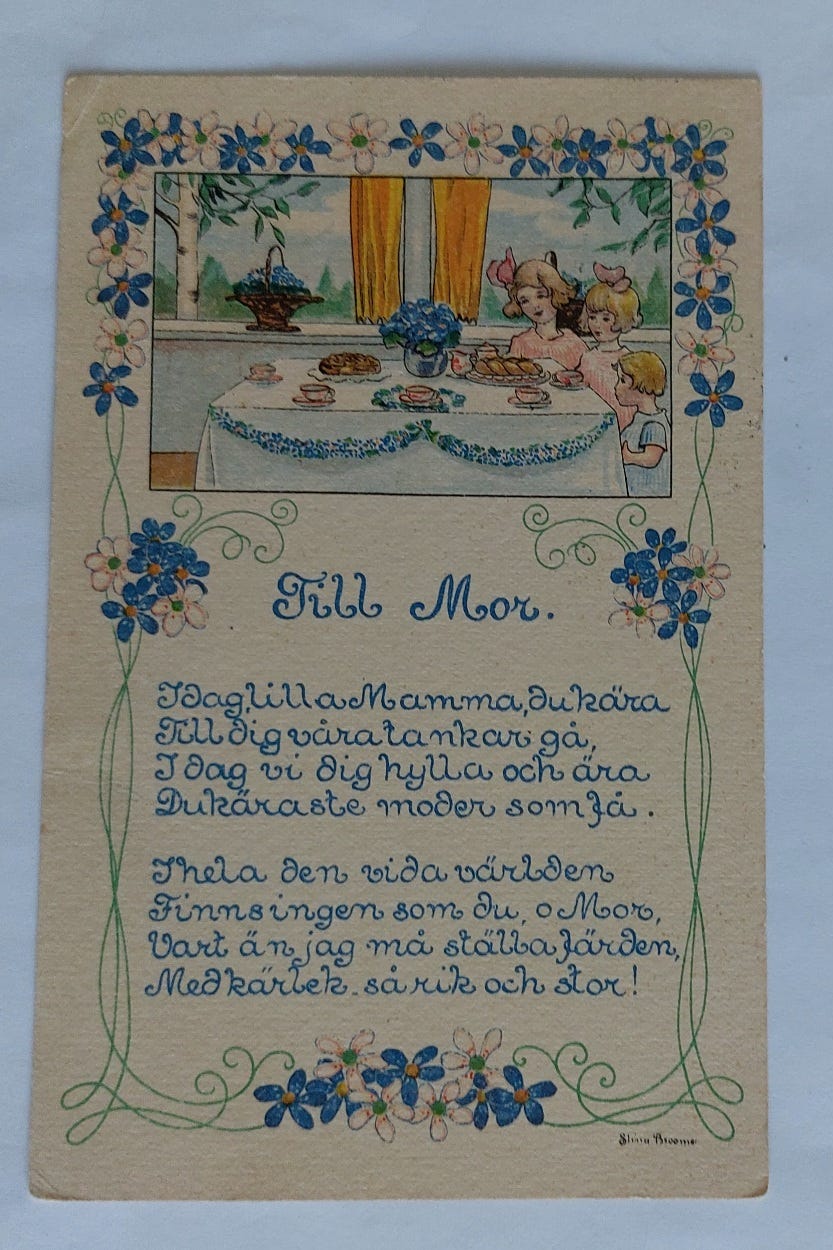 Till Mor.
I dag, lilla Mamma, du kära
Till dig våra tankar gå,
I dag vi dig hylla och ära
Du käraste moder som få.
I hela den vida världen
Finns ingen som du, o Mor,
Vart än jag må ställa färden,
Med kärlek så rik och stor!